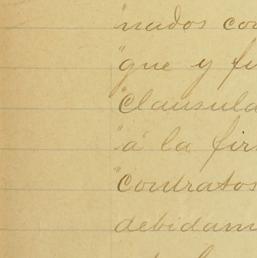 "nados con
"que y fi
"Clausula
"a la fir
"contratos
debidam